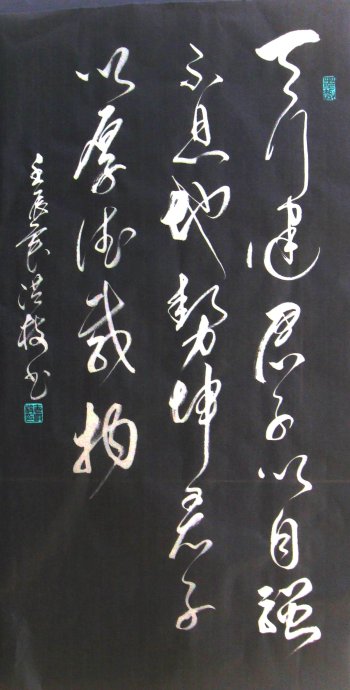 天行健君子以自強
不息地勢坤君子
以厚德載物
壬辰 洪 书